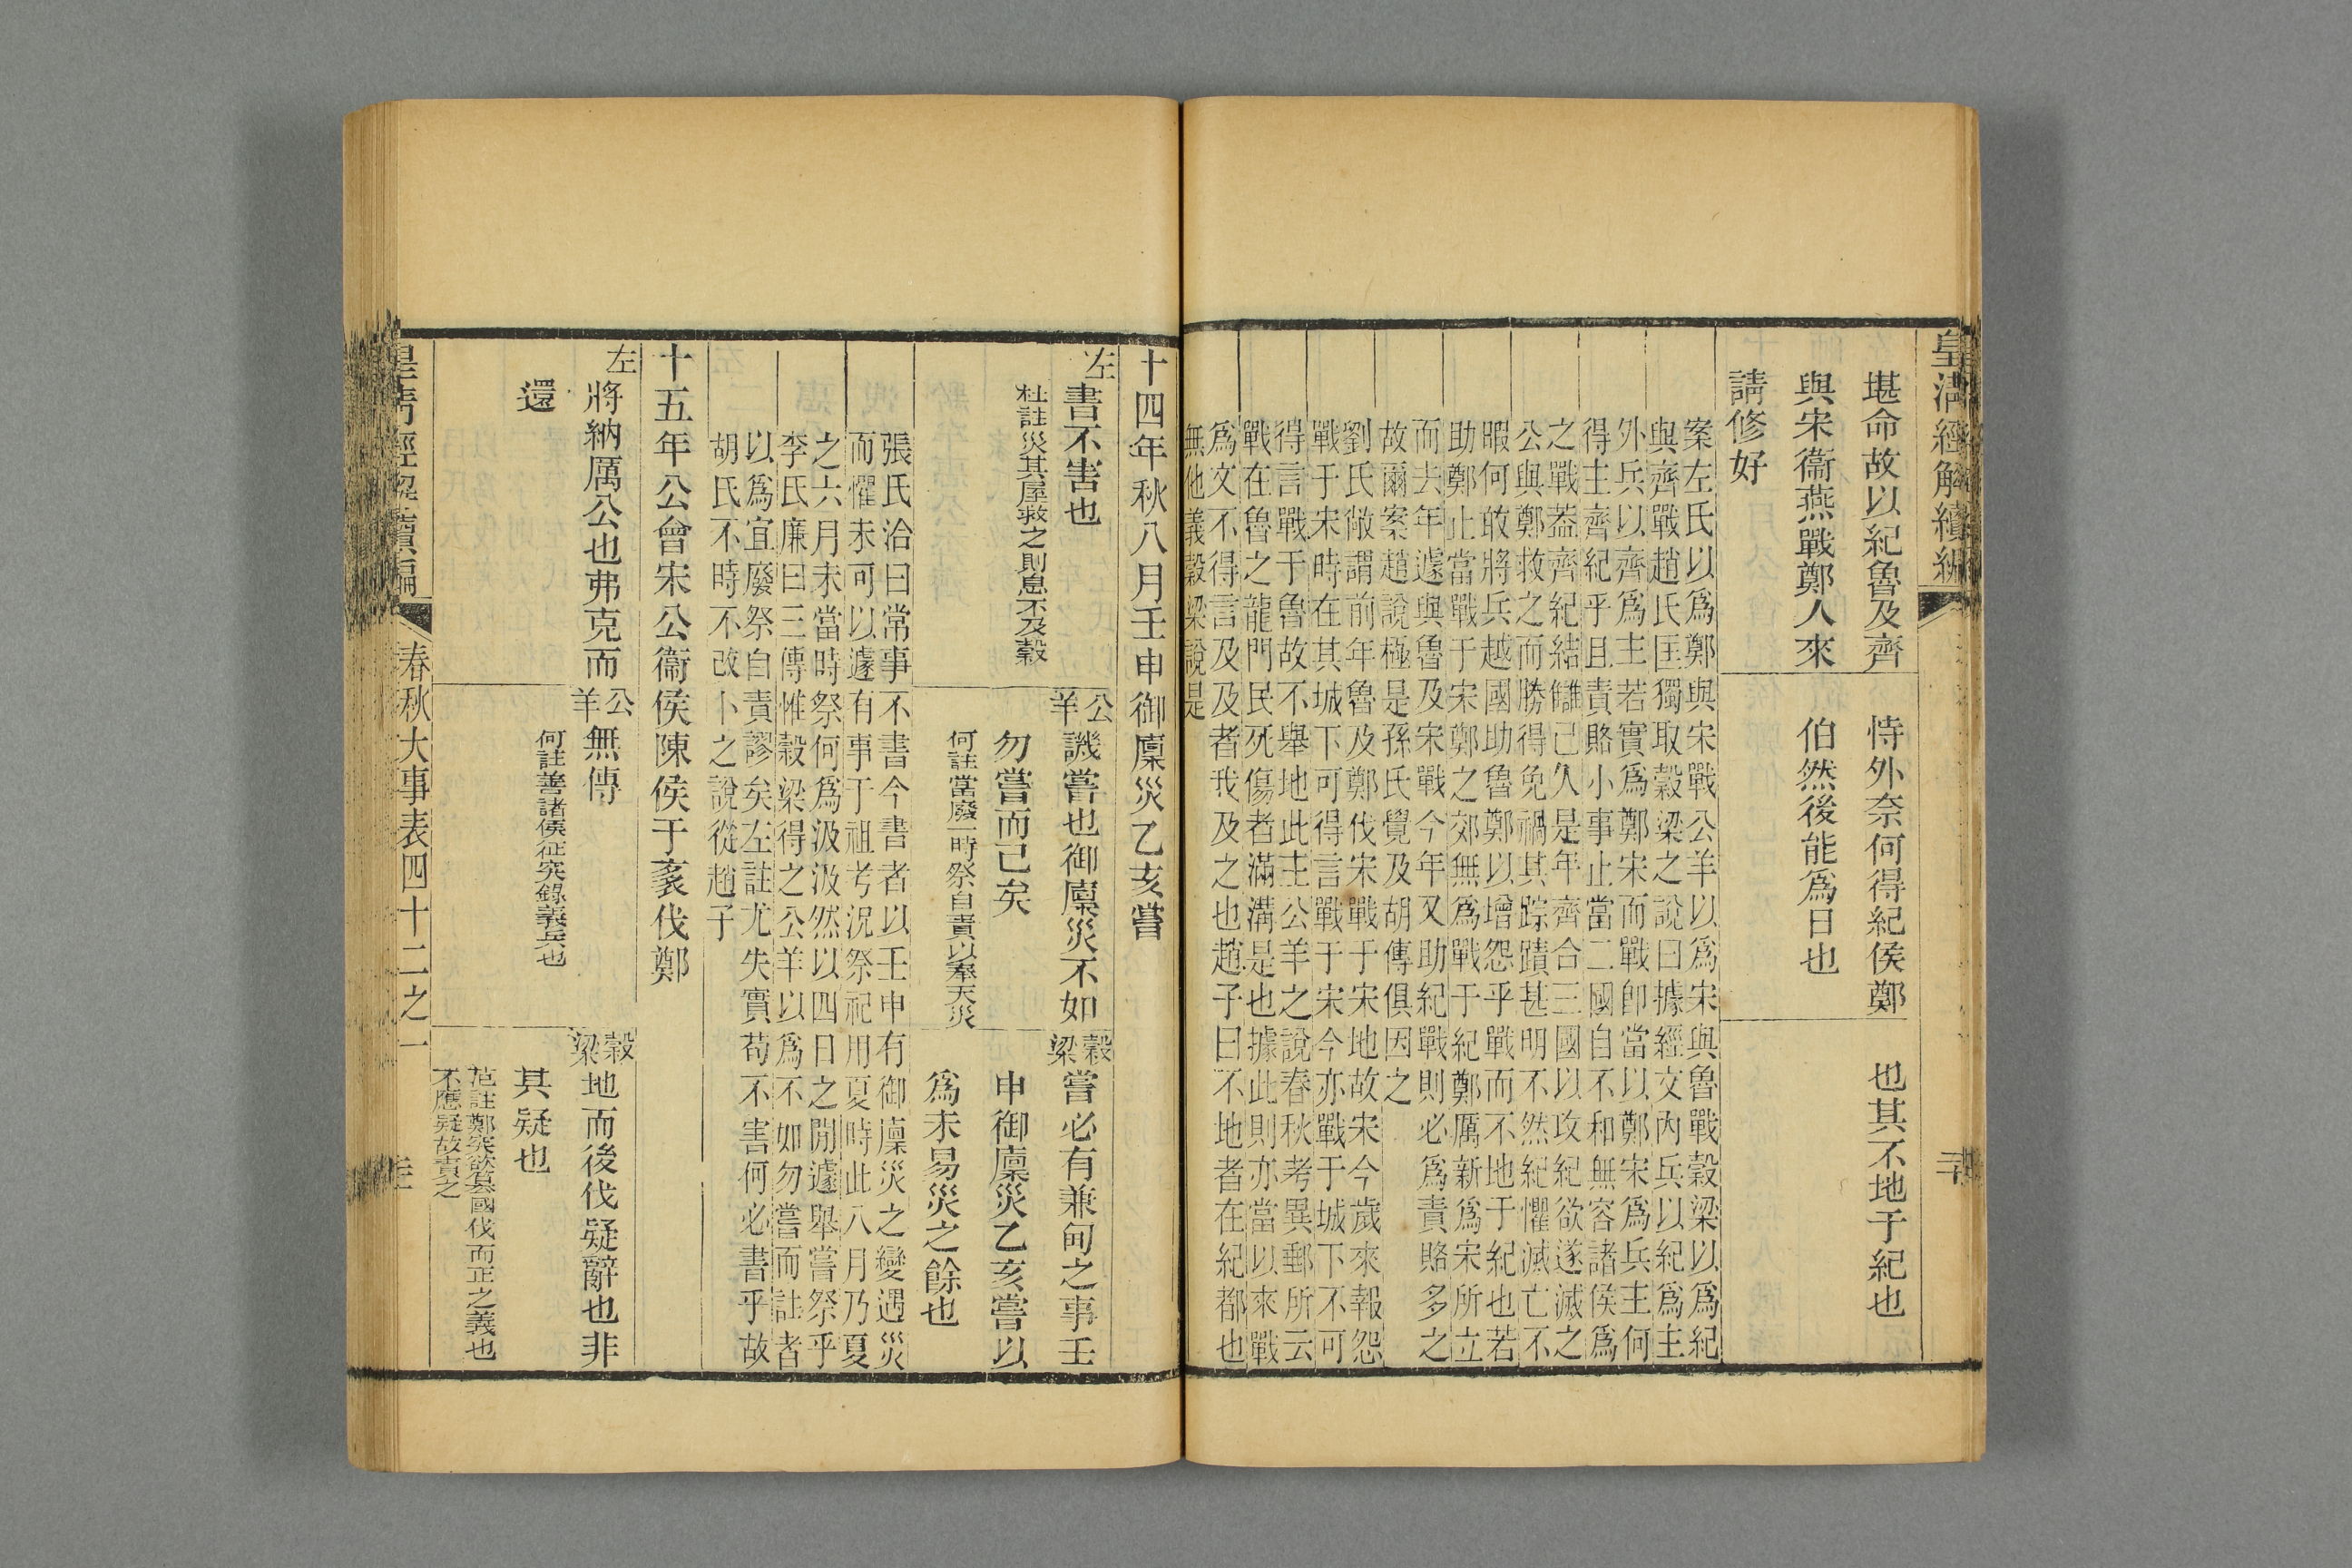 皇清經解續編
堪命故以紀魯及齊
與宋衞燕戰鄭人來
請修好
恃外奈何得紀侯鄭
伯然後能爲日也
也其不地于紀也
案左氏以爲鄭與宋戰公羊以爲宋與魯戰穀梁以爲紀
與齊戰趙氏匡獨取穀梁之說曰據經文內兵以紀爲主
外兵以齊爲主若實爲鄭宋而戰卽當以鄭宋爲兵主何
得主齊紀乎且責賂小事止當二國自不和無容諸侯爲
之戰葢齊紀結讎已久是年齊合三國以攻紀欲遂滅之
公與鄭救之而勝得免禍其踪蹟甚明不然紀懼滅亡不
暇何敢將兵越國助魯鄭以增怨乎戰而不地于紀也若
助鄭止當戰于宋鄭之郊無爲戰于紀鄭厲新爲宋所立
而去年遽與魯及宋戰今年又助紀戰則必爲責賂多之
故爾案趙說極是孫氏覺及胡傳俱因之
劉氏敞謂前年魯及鄭伐宋戰于宋地故宋今歲來報怨
戰于宋時在其城下可得言戰于宋今亦戰于城下不可
得言戰于魯故不舉地此主公羊之說春秋考異郵所云
戰在魯之龍門民死傷者滿溝是也據此則亦當以來戰
爲文不得言及及者我及之也趙子曰不地者在紀都也
無他義穀梁說是
十四年秋八月壬申御廩災乙亥嘗
左
書不害也
杜註災其屋救之則息不及穀
公羊
譏嘗也御廩災不如
勿嘗而已矣
何註當廢一時祭自責以奉天災
穀梁
嘗必有兼甸之事壬
申御廩災乙亥嘗以
爲未易災之餘也
張氏洽曰常事不書今書者以壬申有御廩災之變遇災
而懼未可以遽有事于祖考況祭祀用夏時此八月乃夏
之六月未當時祭何爲汲汲然以四日之閒遽舉嘗祭乎
李氏廉曰三傳惟穀梁得之公羊以爲不如勿嘗而註者
以爲宜廢祭自責謬矣左註尤失實苟不害何必書乎故
胡氏不時不改卜之說從趙子
十五年公會宋公衞侯陳侯于袲伐鄭
左
將納厲公也弗克而
還
公羊
無傳
何註善諸侯征突錄義兵也
穀梁
地而後伐疑辭也非
其疑也
范註鄭突欲篡國伐而正之義也
不應疑故責之
春秋大事表四十二之一